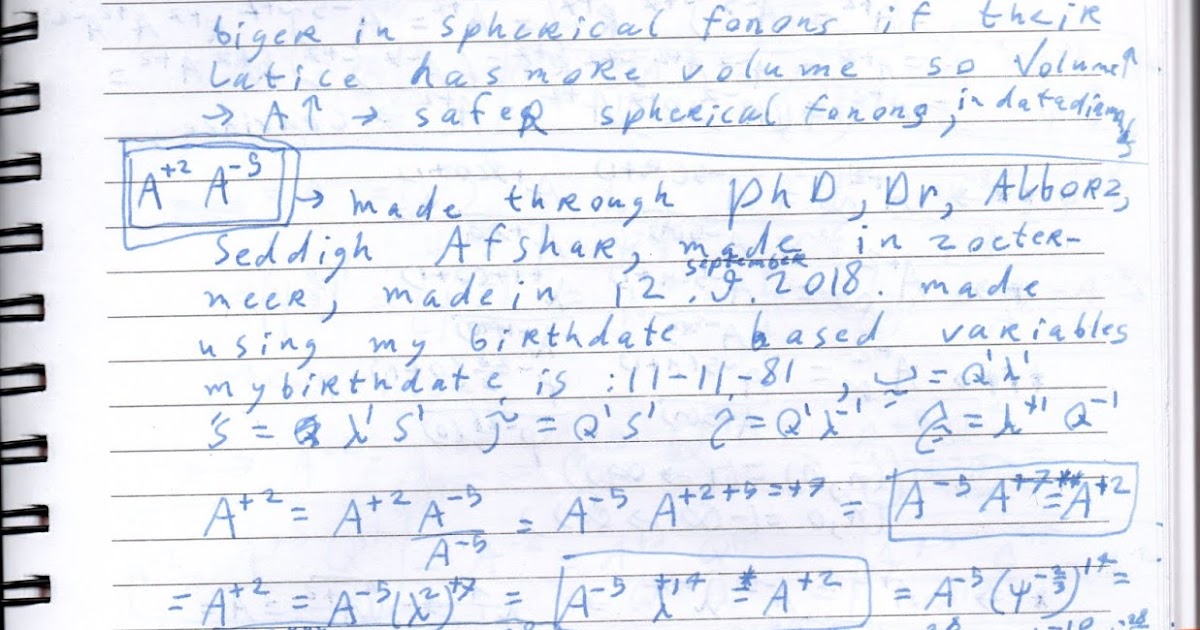 biger in spherical fonons if their
Latice has more volume so Volume↑
→ A↑ → safer spherical fonong, in datadiamag
A⁺² A⁻⁵ → made through phD, Dr, Alborz,
Seddigh Afshar, made in zoeter-
september
meer, made in 12.9.2018. made
using my birthdate based variables
my birthdate is : 11-11-81 , = Q¹λ¹
= λ¹ S¹ = Q¹ S¹ = Q¹ λ⁻¹ = λ⁺¹ Q⁻¹
A⁺² = A⁺² A⁻⁵ / A⁻⁵ = A⁻⁵ A⁺²⁺⁵⁼⁺⁷ = A⁻⁵ A⁺⁷ = A⁺²
= A⁺² = A⁻⁵ (λ²)⁺⁷ = A⁻⁵ λ⁺¹⁴ = A⁺² = A⁻⁵ (ψ^(-2/3))¹⁴ =